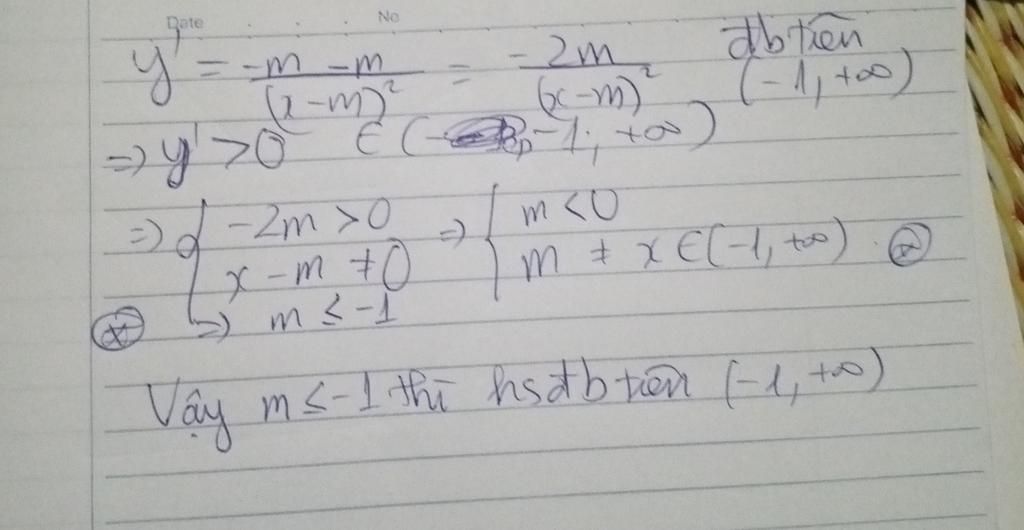 Date . . . No
y' = \frac{-m-m}{(x-m)^2} = \frac{-2m}{(x-m)^2} đb trên (-1, +∞)
=> y' > 0 ∈ (-1; +∞)
=> { -2m > 0 => { m < 0
x - m ≠ 0 m ≠ x ∈ (-1, +∞) (*)
(*) => m ≤ -1
Vậy m ≤ -1 thì hsđb trên (-1, +∞)